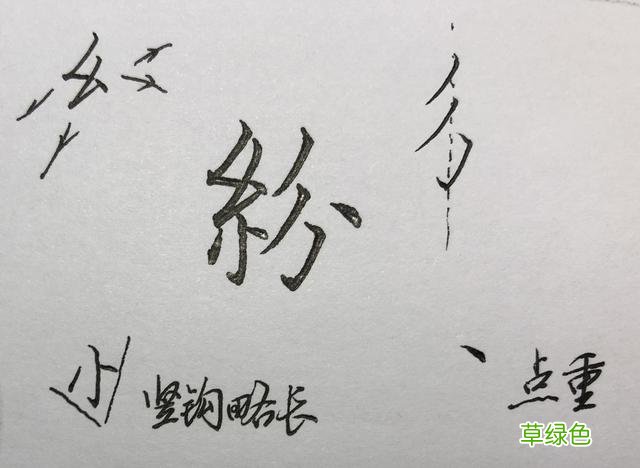 紛
小 竖钩略长
点重
草绿色